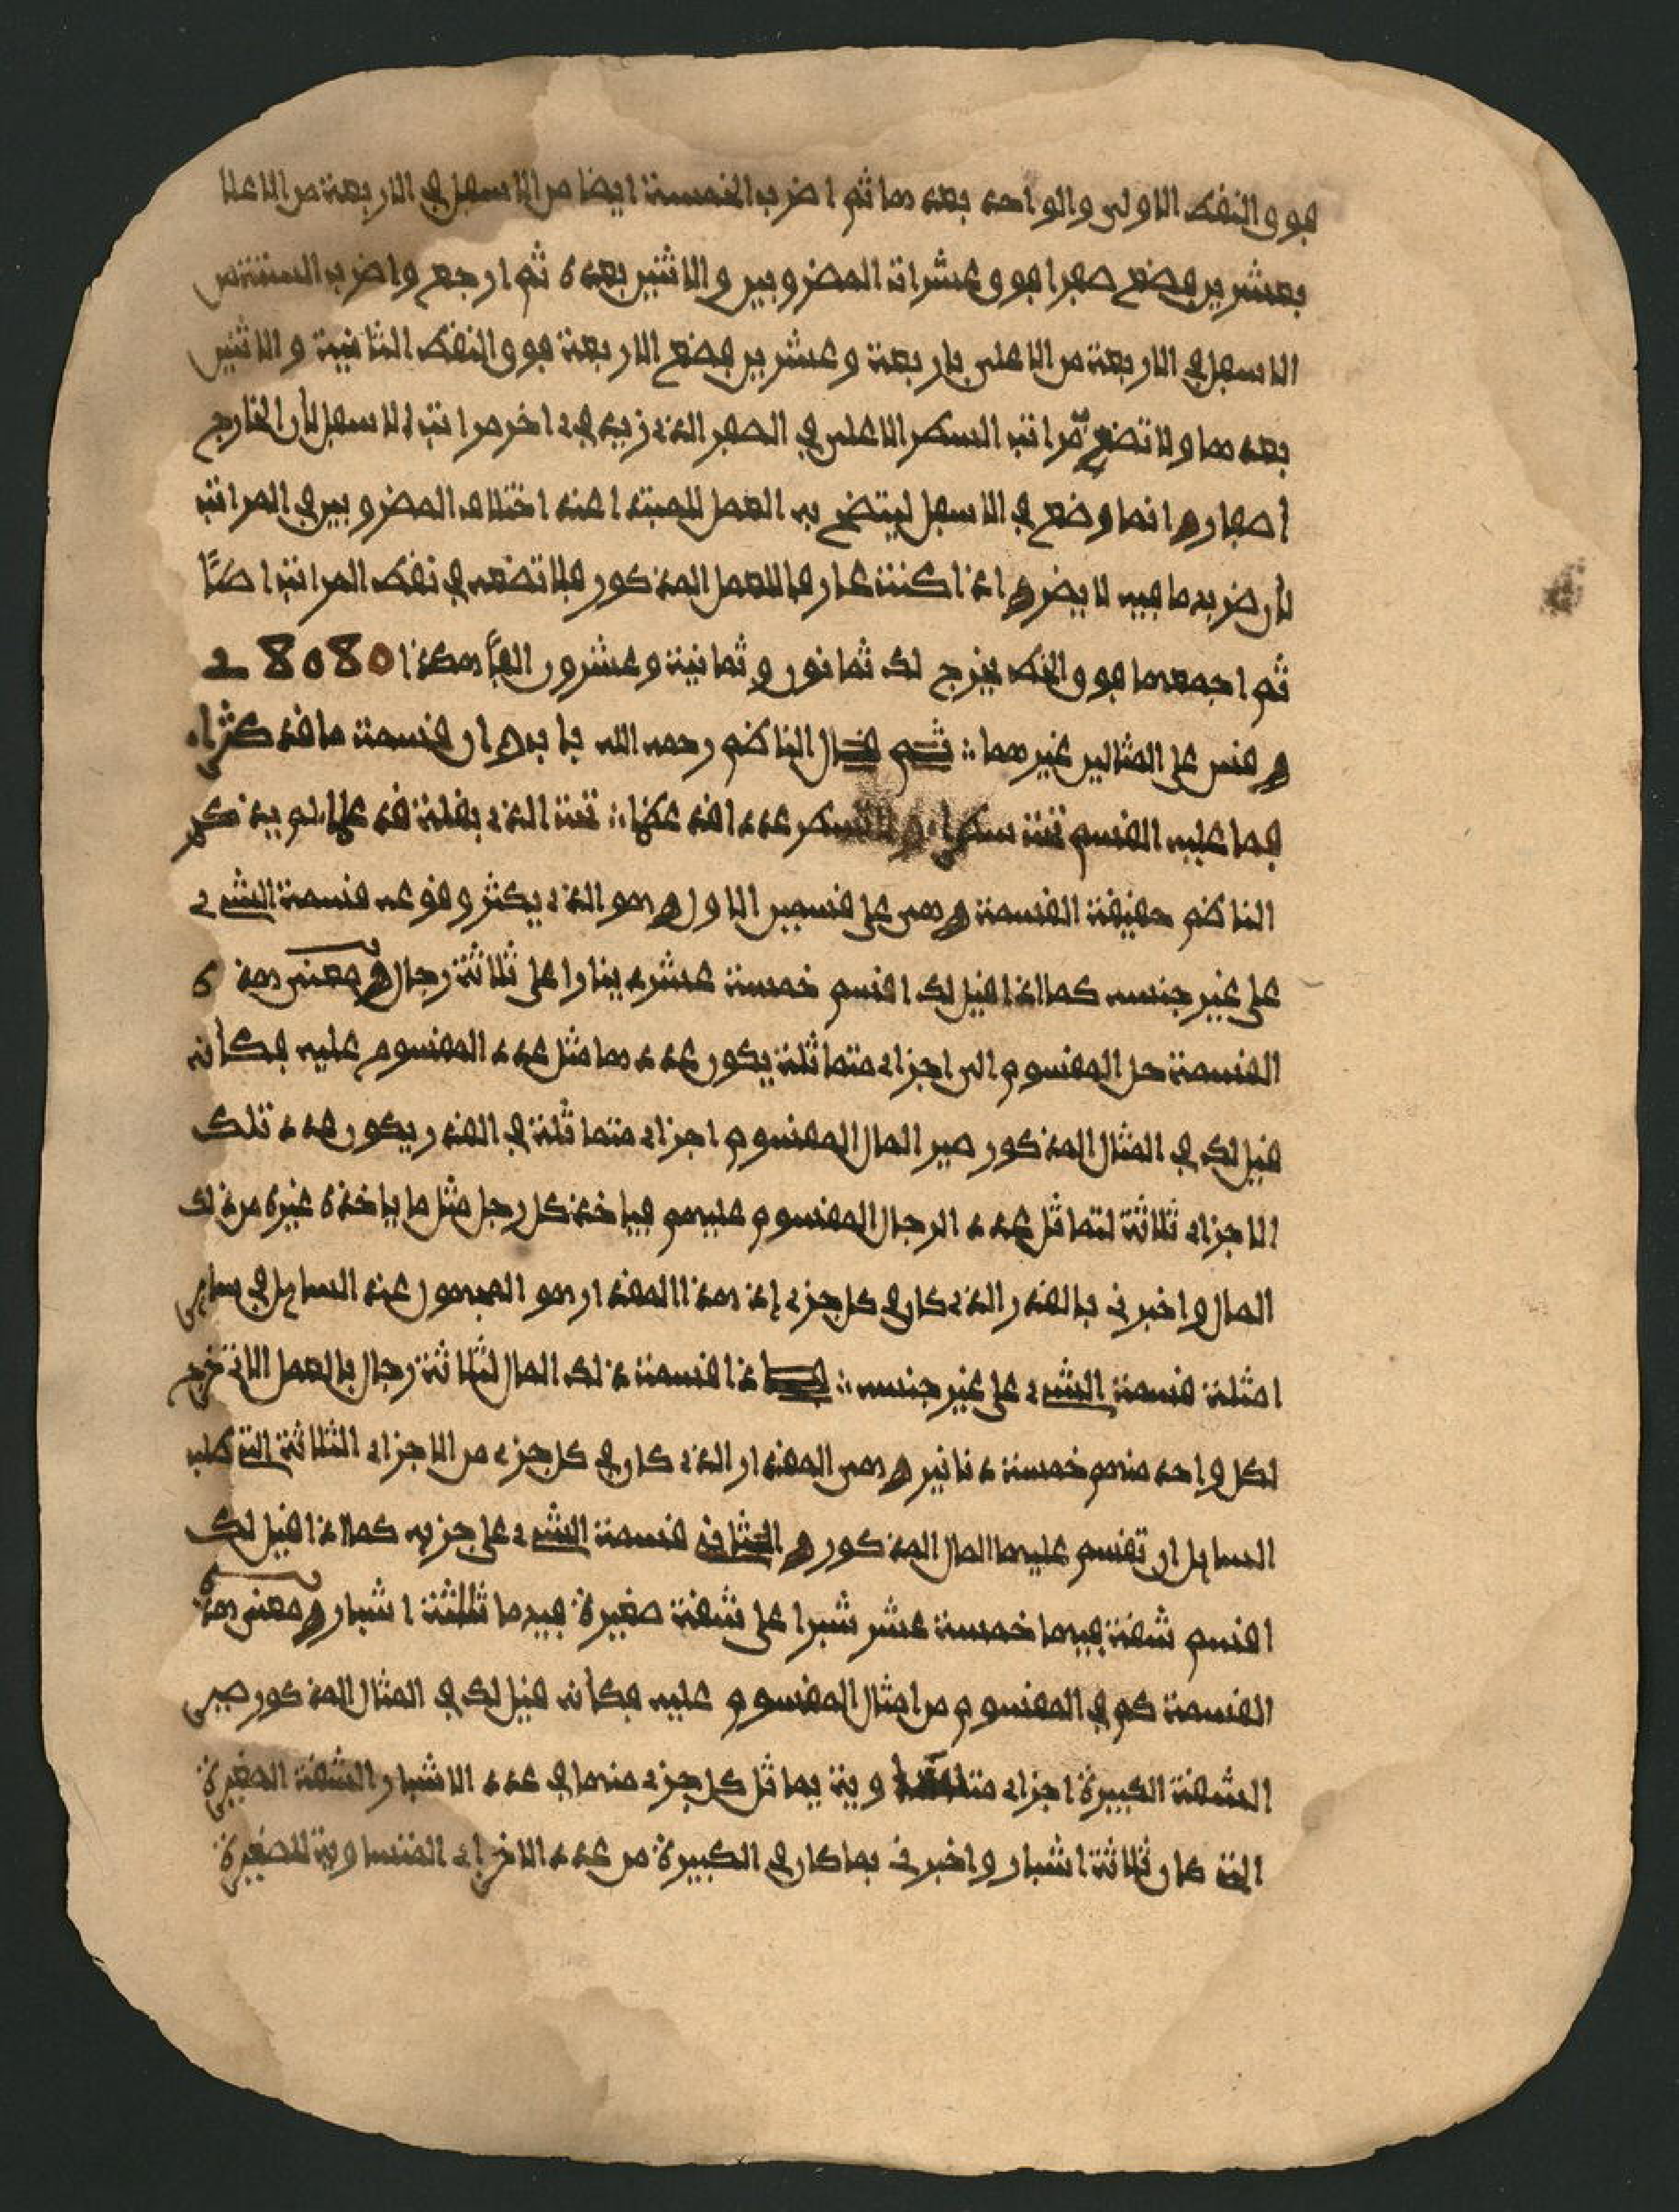 فوق النقط الاولى والواحد بعدها ثم اضرب الخمسة ايضا من الاسفل في الاربعة من الاعلا
بعشرين فضع صفرا فوق عشرات المضروبين والاثنين بعده ثم ارجع واضرب الستة من
الاسفل في الاربعة من الاعلى باربعة وعشرين فضع الاربعة فوق النقط الثانية والاثنين
بعدها ولا تضع مراتب السطر الاعلى في الصفر الذي زيد في اخر مراتب الاسفل لأن الخارج
اصفار وانما وضع في الاسفل ليتضح به العمل للمبتدا عند اختلاف المضروبين في المراتب
لأن ضربه ما فيه لا يضر واذا كنت عارفا للعمل المذكور فلا تضعه في نقط المراتب اصلًا
ثم اجمعها فوق الخط يخرج لك ثمانون وثمانية وعشرون الفًا هكذا 28080
وقس على المثالين غيرهما ∴ ثم قال الناظم رحمه الله باب وان قسمة ما قد كثرا
فما عليه القسم تحت سطرا عددا قد علما ∴ تحت الذي بقلة قد علا لم يذكر
الناظم حقيقة القسمة وهى على قسمين الاول وهو الذي يكثر وقوعه قسمة الشيء
على غير جنسه كما اذا قيل لك اقسم خمسة عشر دينارا على ثلاثة رجال ومعنى هذه
القسمة حل المقسوم الى اجزاء متماثلة يكون عددها مثل عدد المقسوم عليه فكأنه
قيل لك في المثال المذكور صير المال المقسوم اجزاء متماثلة في القدر يكون عدد تلك
الاجزاء ثلاثة لتماثل عدد الرجال المقسوم عليهم فياخذ كل رجل مثل ما ياخذه غيره من ذلك
المال واخبرني بالقدر الذي كان في كل جزء إذ هذا المقدار هو المجهول عند السايل في ساير
امثلة قسمة الشيء على غير جنسه ∴ فاذا قسمت ذلك المال لثلاثة رجال بالعمل الاتي خرج
لكل واحد منهم خمسة دنانير وهى المقدار الذي كان في كل جزء من الاجزاء الثلاثة التي طلب
السايل ان تقسم عليها المال المذكور والثاني قسمة الشيء على جزيه كما اذا قيل لك
اقسم شقة فيها خمسة عشر شبرا على شقة صغيرة فيها ثلثة اشبار ومعنى هذه
القسمة كم في المقسوم من امثال المقسوم عليه فكأنه قيل لك في المثال المذكور صير
الشقة الكبيرة اجزاء متساوية يماثل كل جزء منها في عدد الاشبار الشقة الصغيرة
التي كان ثلاثة اشبار واخبرني بما كان في الكبيرة من عدد الاجزاء المتساوية للصغيرة